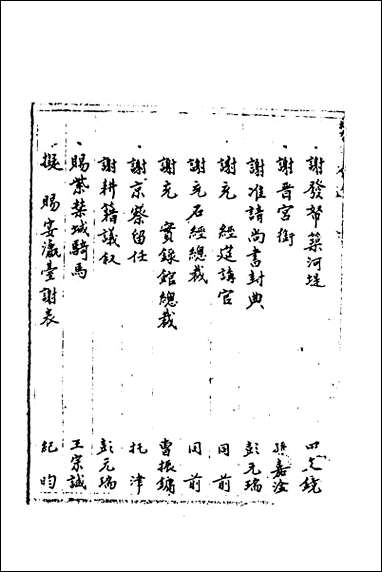 謝發帑築河堤 田文鏡
謝晋宮銜 孫嘉淦
謝准請尚書封典 彭元瑞
謝充 經筵講官 同前
謝充石經總裁 同前
謝充 實錄館總裁 曹振鏞
謝京察留任 托津
謝耕耤議叙 彭元瑞
賜紫禁城騎馬 王宗誠
擬 賜宴瀛臺謝表 紀昀